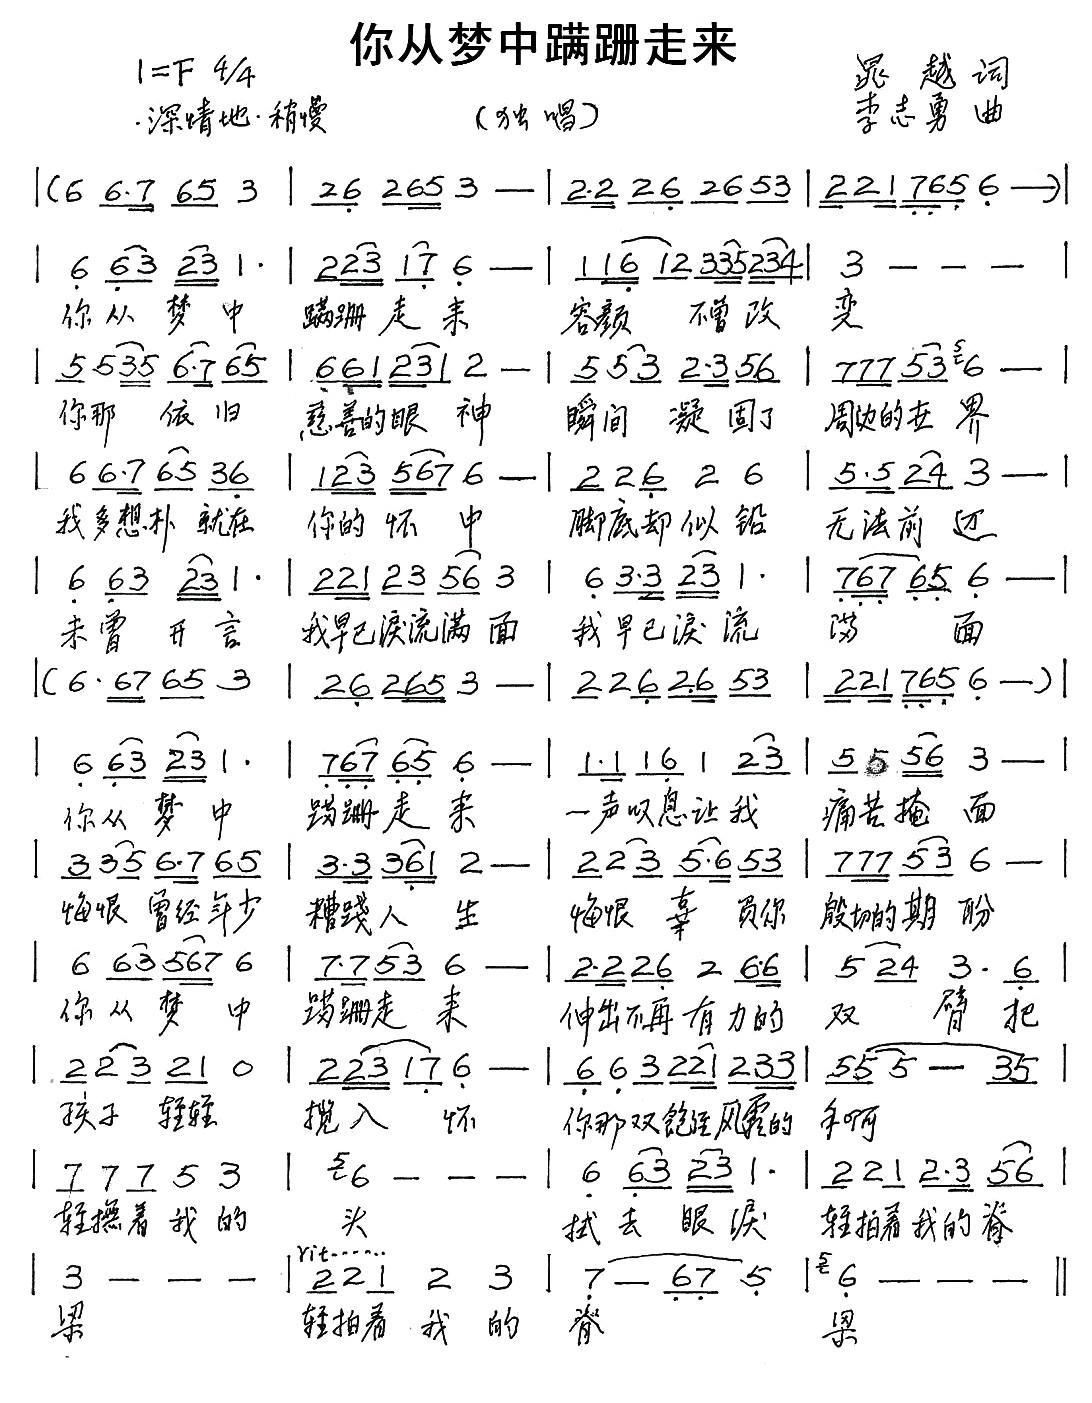 你从梦中蹒跚走来
1=F 4/4
晁越词
·深情地·稍慢
(独唱)
李志勇曲
|(6 6·7 65 3 | 26 265 3 — | 2·2 26 2653 | 221 765 6 —)|
| 6 63 23 1· | 223 17 6 — | 116 12 335 234 | 3 — — — |
你从梦中 蹒跚走来 容颜不曾改变
| 5 535 6·7 65 | 661 231 2 — | 5 53 2·3 56 | 777 53 56 — |
你那依旧 慈善的眼神 瞬间凝固了 周边的世界
| 6 6·7 65 36 | 123 567 6 — | 2 26 2 6 | 5·5 24 3 — |
我多想扑就在 你的怀中 脚底却似铅 无法前迈
| 6 63 23 1· | 221 23 56 3 | 6 3·3 23 1· | 767 65 6 — |
未曾开言 我早已淚流满面 我早已淚流 满面
|(6· 67 65 3 | 26 265 3 — | 2 26 2·6 53 | 221 765 6 —)|
| 6 63 23 1· | 767 65 6 — | 1·1 16 1 23 | 5 5 56 3 — |
你从梦中 蹒跚走来 一声叹息让我 痛苦掩面
| 3 35 6·7 65 | 3·3 361 2 — | 2 23 5·6 53 | 777 53 6 — |
悔恨曾经年少 糟踐人生 悔恨辜负你 殷切的期盼
| 6 63 567 6 | 7·7 53 6 — | 2·2 26 2 6·6 | 5 24 3· 6 |
你从梦中 蹒跚走来 伸出不再有力的 双臂把
| 2 23 21 0 | 223 17 6 — | 6 63 221 233 | 55 5 — 35 |
孩子轻轻 揽入怀 你那双饱经风霜的 手啊
| 7 7 7 5 3 | 56 — — — | 6 63 23 1· | 2 21 2·3 56 |
轻撫着我的 头 拭去眼淚 轻拍着我的脊
rit......
| 3 — — — | 221 2 3 | 7 — 67 5 | 56 — — — ‖
梁 轻拍着我的 脊 梁